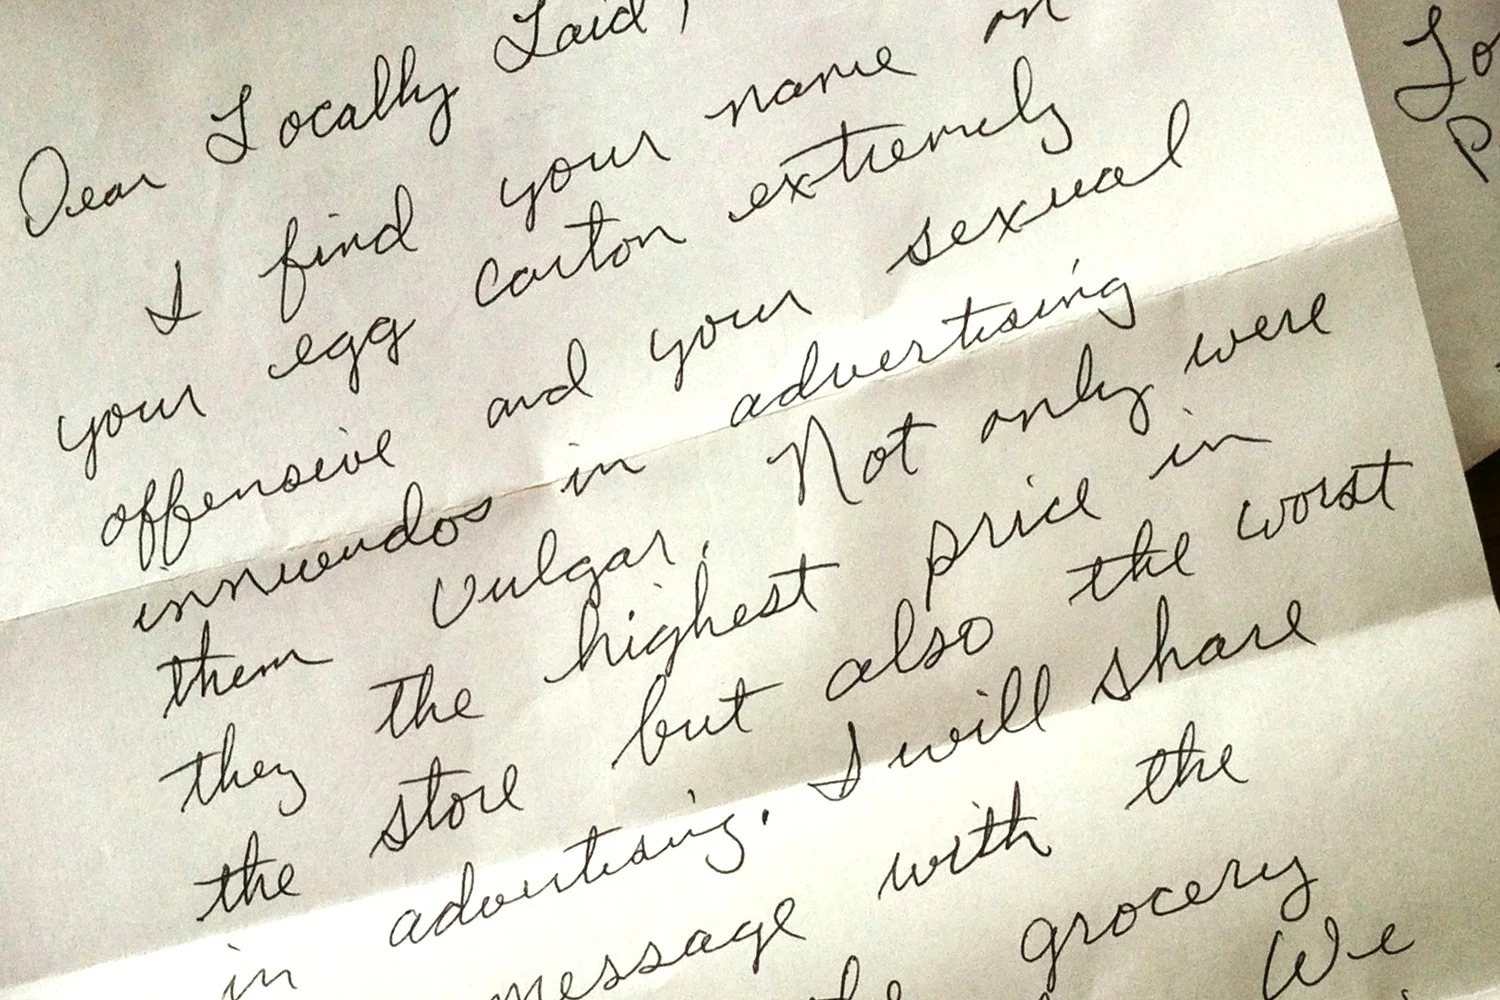 Dear Locally Laid,
I find your name on
your egg carton extremely
offensive and your sexual
innuendos in advertising
them vulgar. Not only were
they the highest price in
the store but also the worst
in advertising. I will share
message with the
the grocery
We
Lo
P